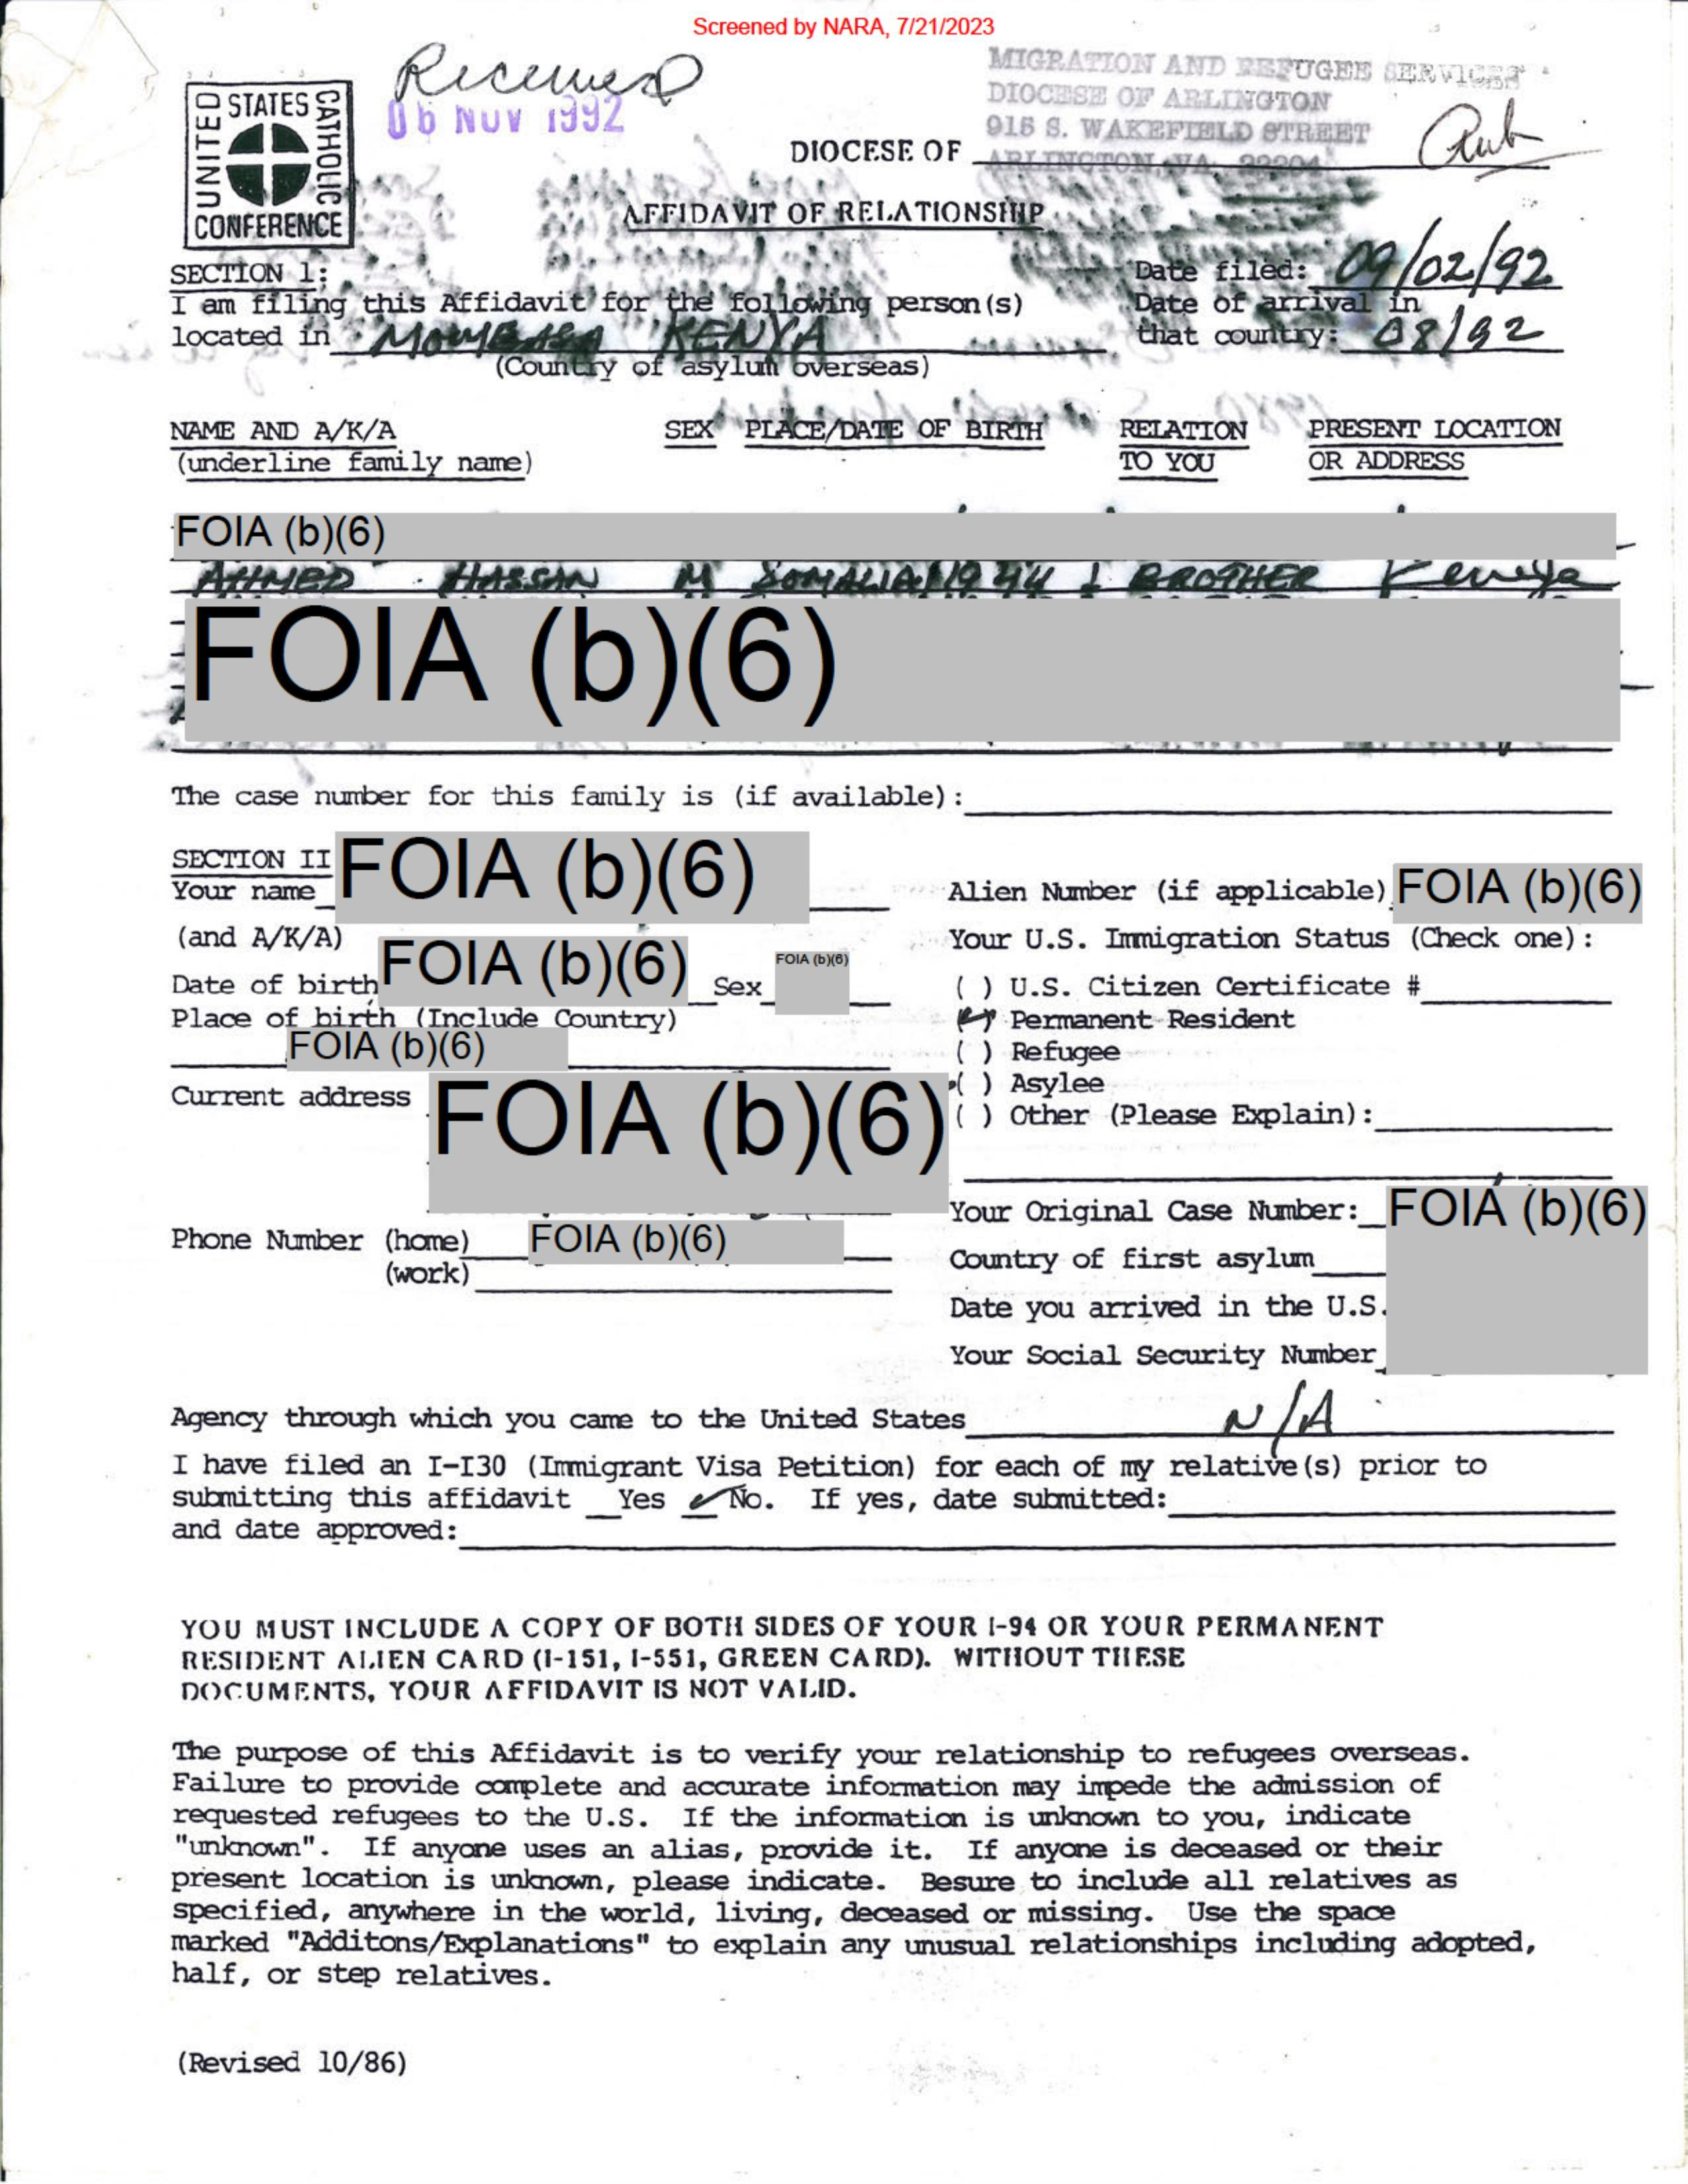 Screened by NARA, 7/21/2023
UNITED STATES CATHOLIC CONFERENCE
Received
06 NOV 1992
MIGRATION AND REFUGEE SERVICES
DIOCESE OF ARLINGTON
915 S. WAKEFIELD STREET
ARLINGTON, VA. 22204
DIOCESE OF
AFFIDAVIT OF RELATIONSHIP
SECTION 1:
Date filed: 09/02/92
I am filing this Affidavit for the following person(s)
Date of arrival in
located in MOMBASA KENYA
that country: 08/92
(Country of asylum overseas)
NAME AND A/K/A SEX PLACE/DATE OF BIRTH RELATION PRESENT LOCATION
(underline family name) TO YOU OR ADDRESS
FOIA (b)(6)
AHMED HASSAN M SOMALIA 1944 BROTHER Kenya
FOIA (b)(6)
The case number for this family is (if available):
SECTION II
Your name FOIA (b)(6)
(and A/K/A)
Date of birth FOIA (b)(6) Sex FOIA (b)(6)
Place of birth (Include Country)
FOIA (b)(6)
Current address FOIA (b)(6)
Phone Number (home) FOIA (b)(6)
(work)
Alien Number (if applicable) FOIA (b)(6)
Your U.S. Immigration Status (Check one):
( ) U.S. Citizen Certificate #
(✓) Permanent Resident
( ) Refugee
( ) Asylee
( ) Other (Please Explain):
Your Original Case Number: FOIA (b)(6)
Country of first asylum
Date you arrived in the U.S.
Your Social Security Number
Agency through which you came to the United States N/A
I have filed an I-I30 (Immigrant Visa Petition) for each of my relative(s) prior to
submitting this affidavit __Yes ✓No. If yes, date submitted:
and date approved:
YOU MUST INCLUDE A COPY OF BOTH SIDES OF YOUR I-94 OR YOUR PERMANENT
RESIDENT ALIEN CARD (I-151, I-551, GREEN CARD). WITHOUT THESE
DOCUMENTS, YOUR AFFIDAVIT IS NOT VALID.
The purpose of this Affidavit is to verify your relationship to refugees overseas.
Failure to provide complete and accurate information may impede the admission of
requested refugees to the U.S. If the information is unknown to you, indicate
"unknown". If anyone uses an alias, provide it. If anyone is deceased or their
present location is unknown, please indicate. Besure to include all relatives as
specified, anywhere in the world, living, deceased or missing. Use the space
marked "Additons/Explanations" to explain any unusual relationships including adopted,
half, or step relatives.
(Revised 10/86)